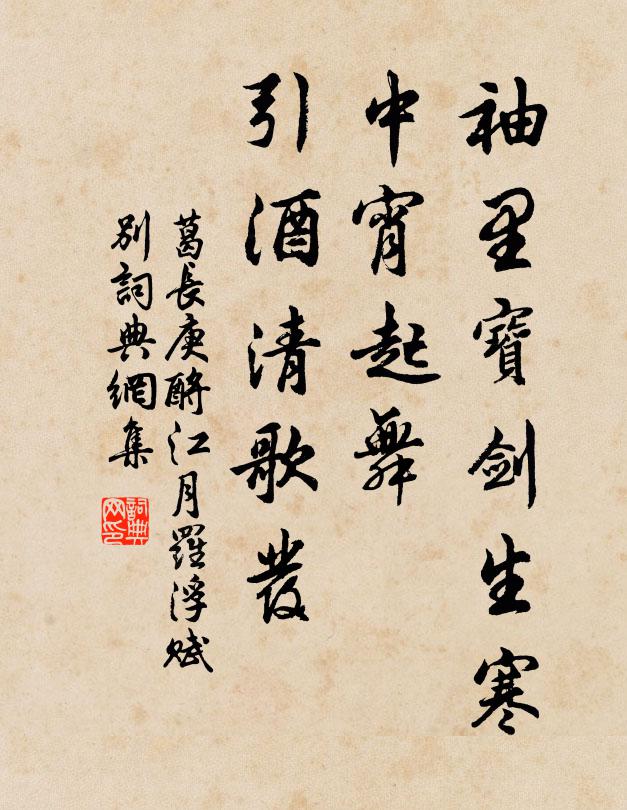 袖里寶劍生寒
中宵起舞
引酒清歌發
葛長庚酹江月羅浮賦
別詞典網集
詞典
网印